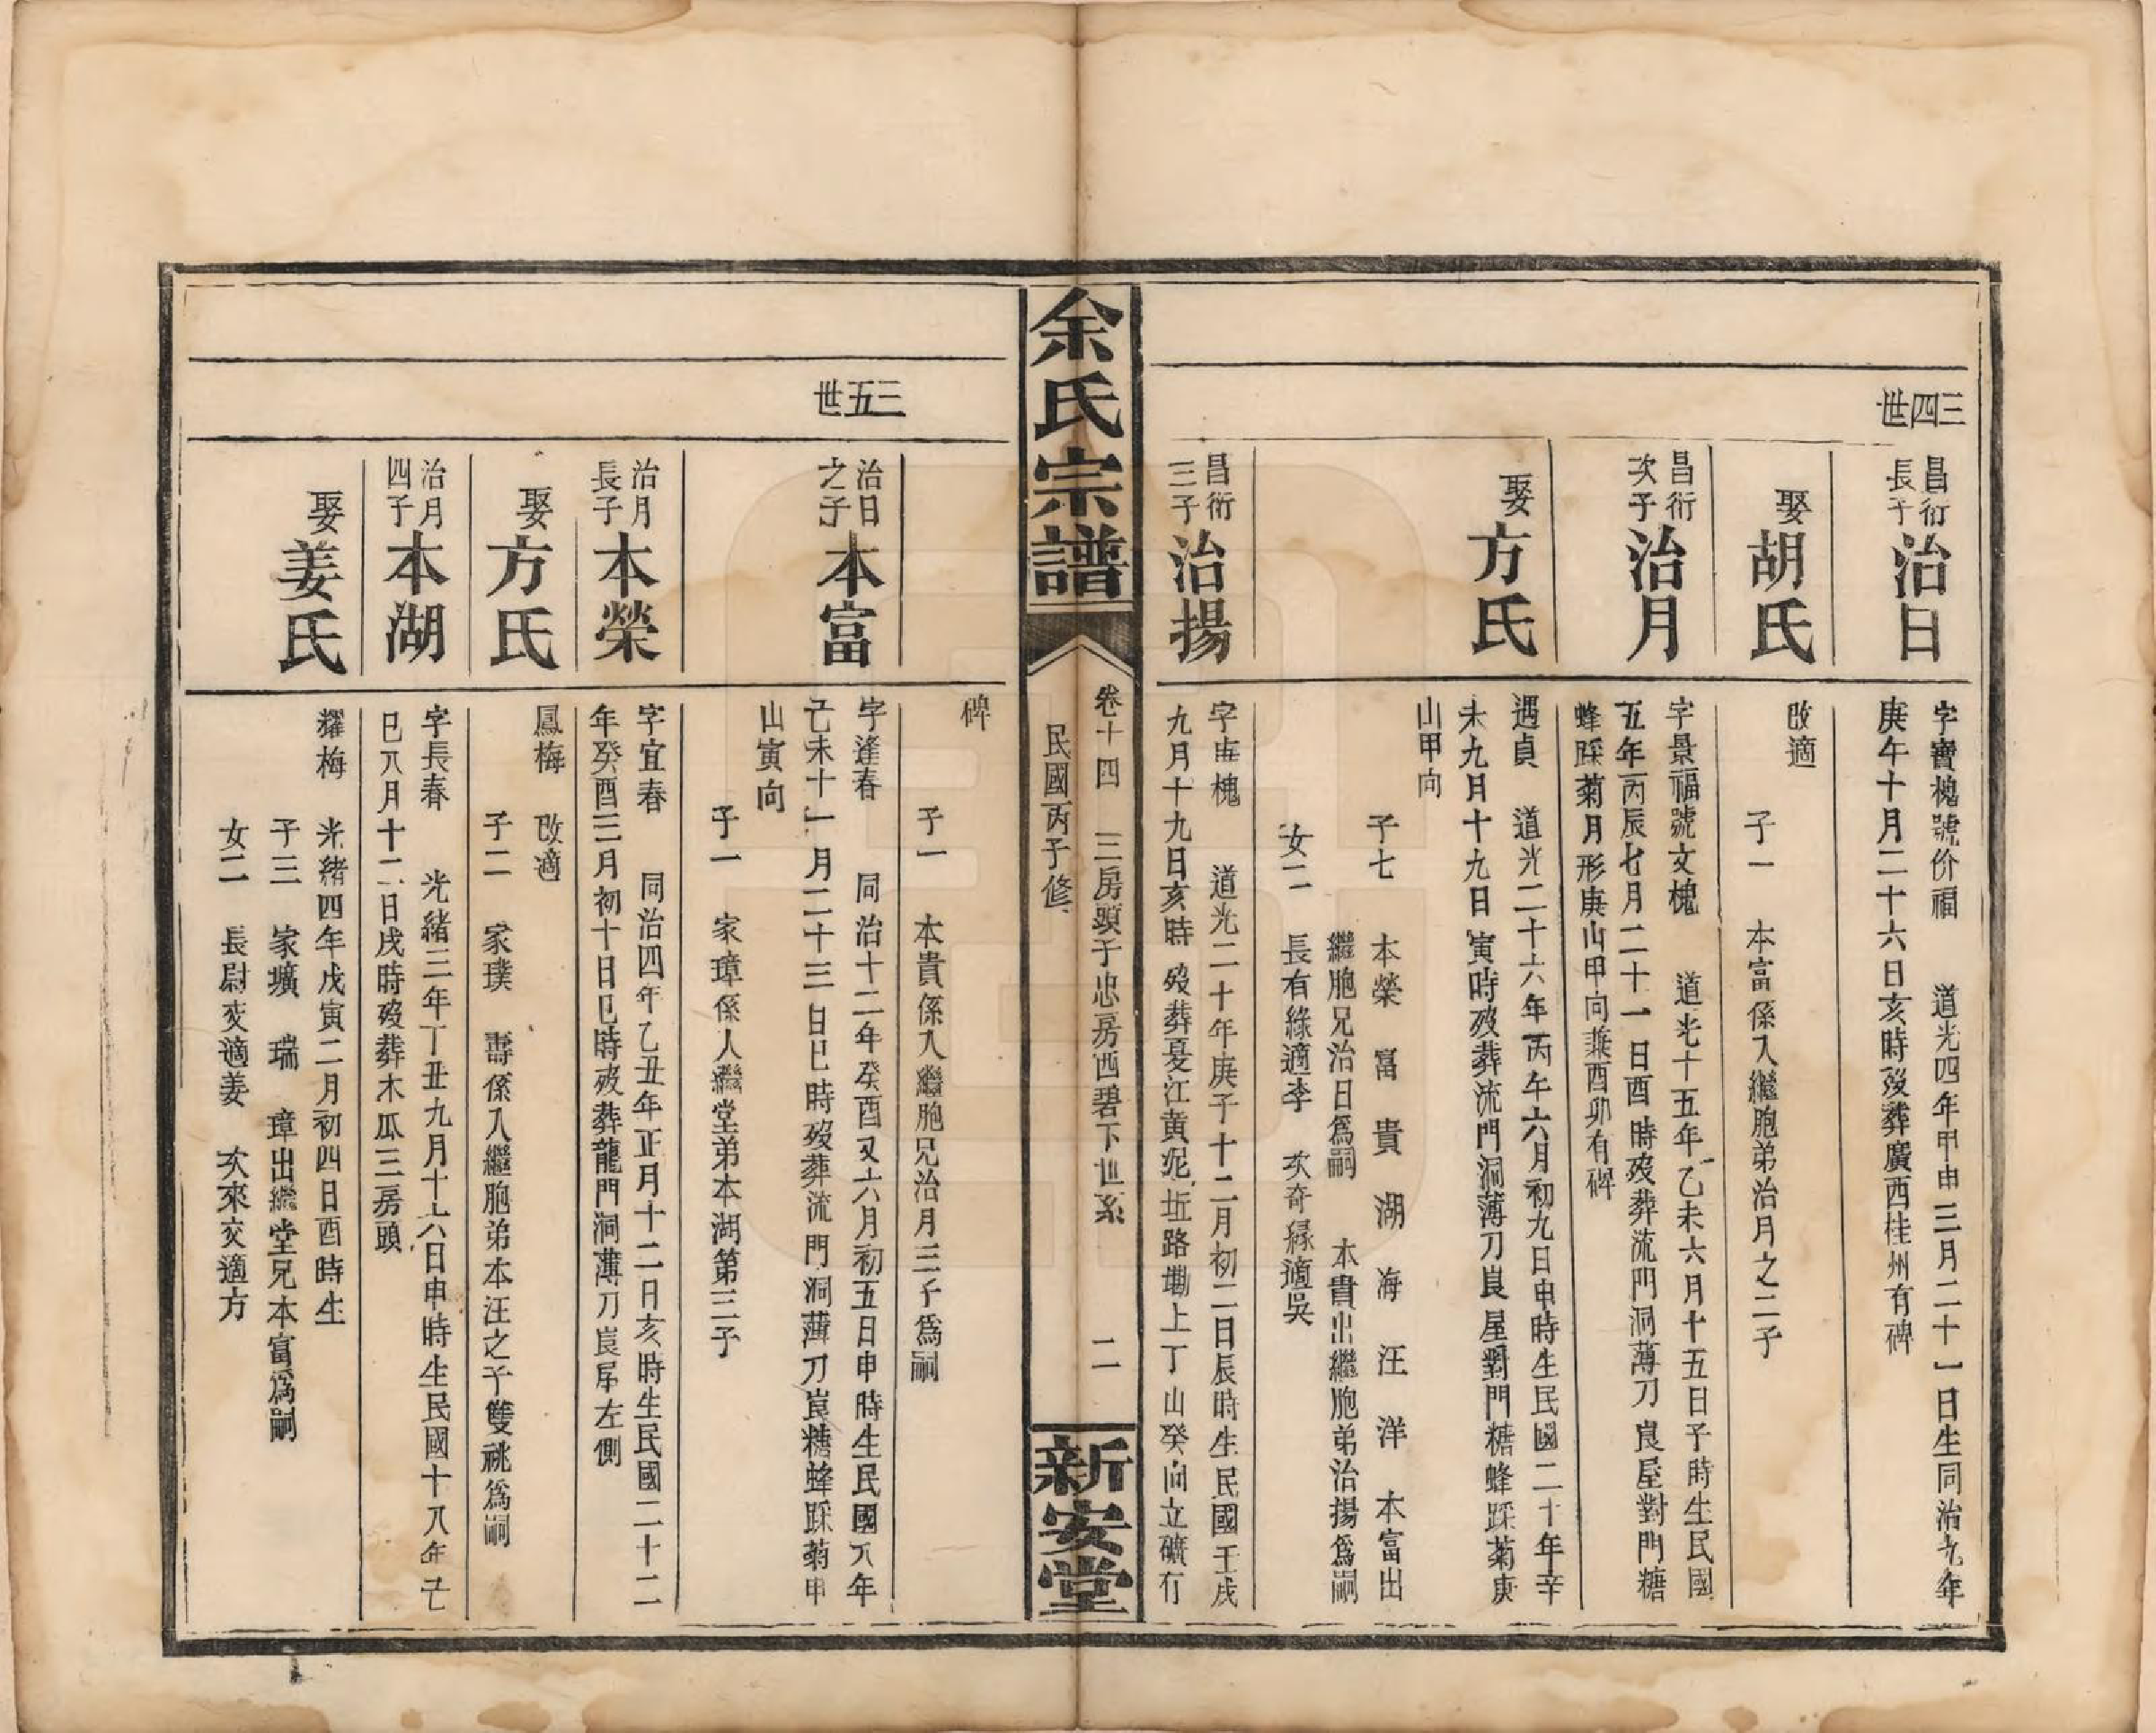 三四世
昌衍長子 治日
字寶槐號价福 道光四年甲申三月二十一日生同治九年
庚午十月二十六日亥時歿葬廣西桂州有碑
娶 胡氏
改適
子一 本富係入繼胞弟治月之二子
昌衍次子 治月
字景福號文槐 道光十五年乙未六月十五日子時生民國
五年丙辰七月二十一日酉時歿葬流門洞薄刀崀屋對門糖
蜂踩菊月形庚山甲向兼酉卯有碑
娶 方氏
遇貞 道光二十六年丙午六月初九日申時生民國二十年辛
未九月十九日寅時歿葬流門洞薄刀崀屋對門糖蜂踩菊庚
山甲向
子七 本榮 富 貴 湖 海 汪 洋 本富出
繼胞兄治日為嗣 本貴出繼胞弟治揚為嗣
女二 長有綠適李 次奇綠適吳
昌衍三子 治揚
字 槐 道光二十年庚子十二月初二日辰時生民國壬戌
九月十九日亥時歿葬憂江黃泥坵路塝上丁山癸向立礦有
余氏宗譜
卷十四 三房頭子忠房西碧下世系 二
民國丙子修
新安堂
碑
子一 本貴係入繼胞兄治月三子為嗣
三五世
治日之子 本富
字逢春 同治十二年癸酉又六月初五日申時生民國八年
己未十一月二十三日巳時歿葬流門洞薄刀崀糖蜂踩菊申
山寅向
子一 家璋係人繼堂弟本湖第三子
治月長子 本榮
字宜春 同治四年乙丑年正月十二日亥時生民國二十二
年癸酉三月初十日巳時歿葬龍門洞薄刀崀屋左側
娶 方氏
鳳梅 改適
子二 家璞 壽係入繼胞弟本汪之子雙祧為嗣
治月四子 本湖
字長春 光緒三年丁丑九月十六日申時生民國十八年己
巳八月十二日戌時歿葬木瓜三房頭
娶 姜氏
耀梅 光緒四年戊寅二月初四日酉時生
子三 家壙 瑞 璋出繼堂兄本富為嗣
女二 長尉英適姜 次來交適方